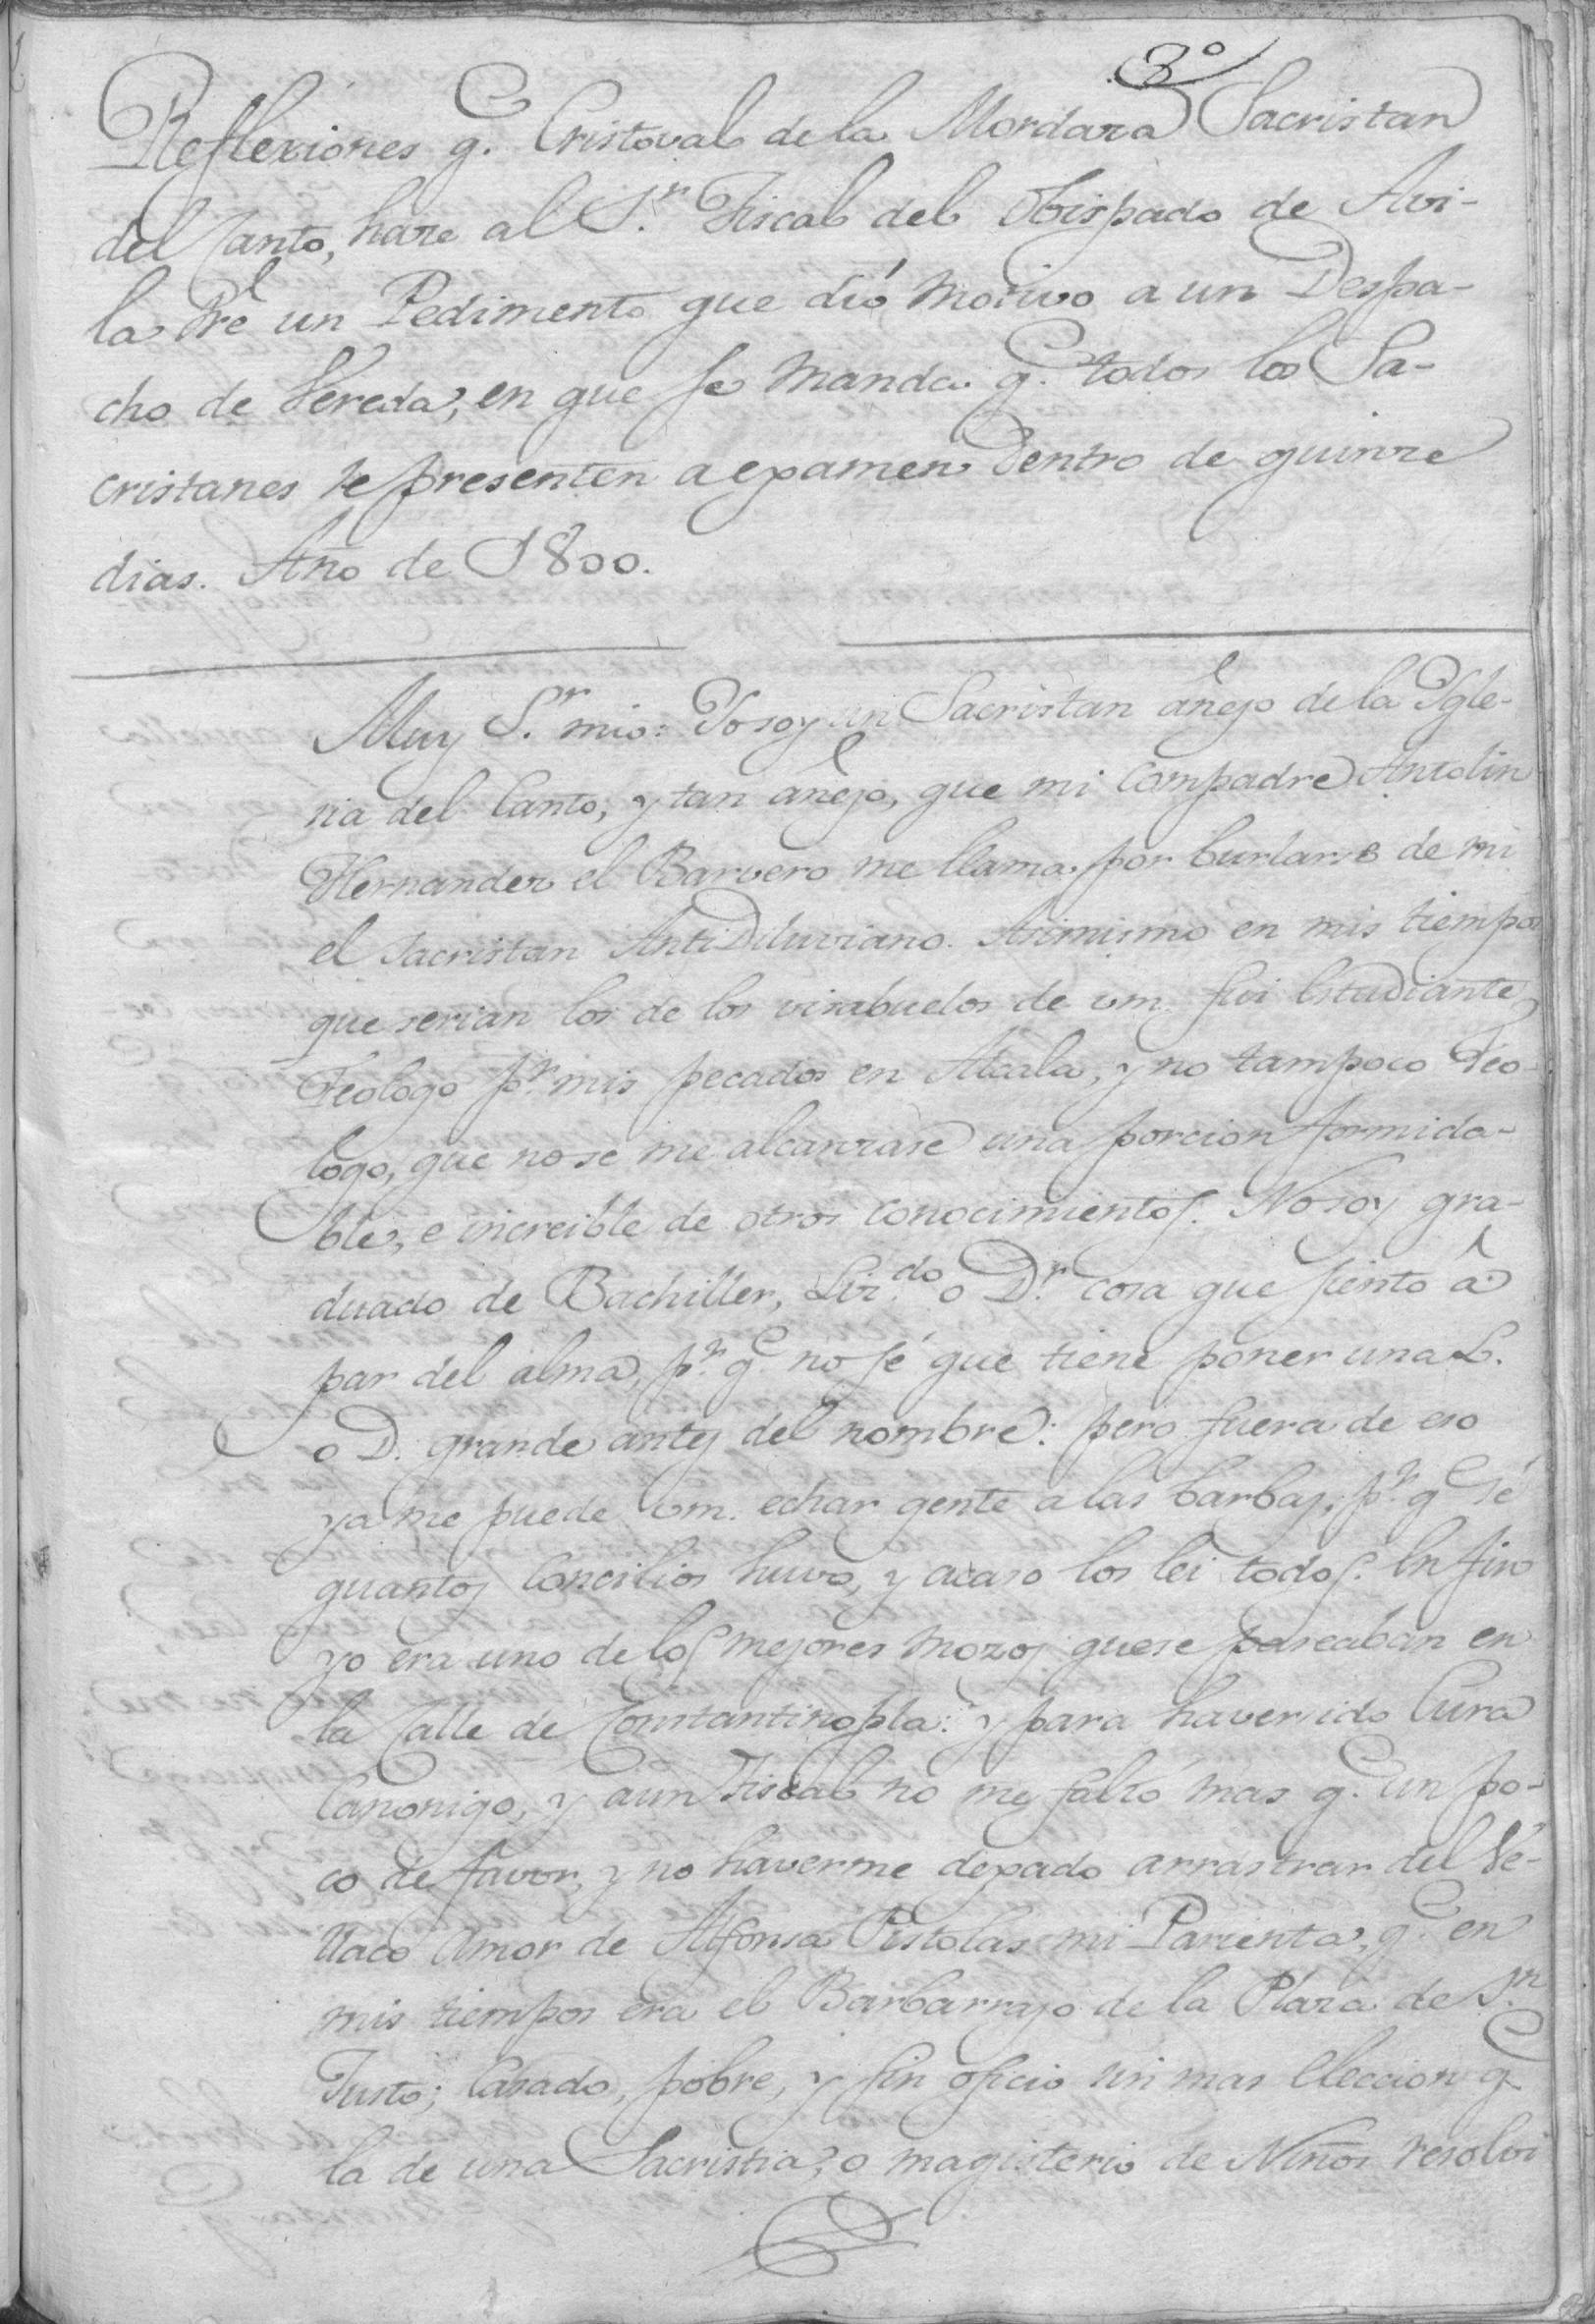 3º
Reflexiones q. Cristoval de la Mordaza Sacristan
del Canto, haze al S.r Fiscal del Obispado de Avi-
la Sre un Pedimento que dió motivo a un Despa-
cho de Vereda, en que se manda q. todos los Sa-
cristanes se presenten a examen dentro de quinze
dias. Año de 1800.
Muy S.r mio: Yo soy un Sacristan añejo de la Ygle-
sia del Canto, y tan añejo, que mi Compadre Antolin
Hernandez el Barvero me llama por burlarse de mi
el Sacristan AntiDiluviano. Asimismo en mis tiempos
que serian los de los visabuelos de vm. fui Estudiante
Teologo p.r mis pecados en Alcala, y no tampoco Teo-
logo, que no se me alcanzase una porcion formida-
ble, e increible de otros conocimientos. No soy gra-
duado de Bachiller, Liz.do o D.r cosa que siento â
par del alma, p.r q.e no sé que tiene poner una L.
o D. grande antes del nombre: pero fuera de eso
ya me puede vm. echar gente a las barbas, p.r q.e sé
quantos Concilios huvo, y acaso los lei todos. En fin
yo era uno de los mejores mozos que se paseaban en
la Calle de Constantinopla: y para haver sido Cura
Canonigo, y aun Fiscal no me faltó mas q. un po-
co de favor, y no haverme dexado arrastrar del Ve-
llaco Amor de Alfonsa Pistolas mi Parienta, q.e en
mis tiempos era el Barbarrajo de la Plaza de S.n
Justo; Casado, pobre, y sin oficio ni mas eleccion q.e
la de una Sacristia, o magisterio de Niños resolvi